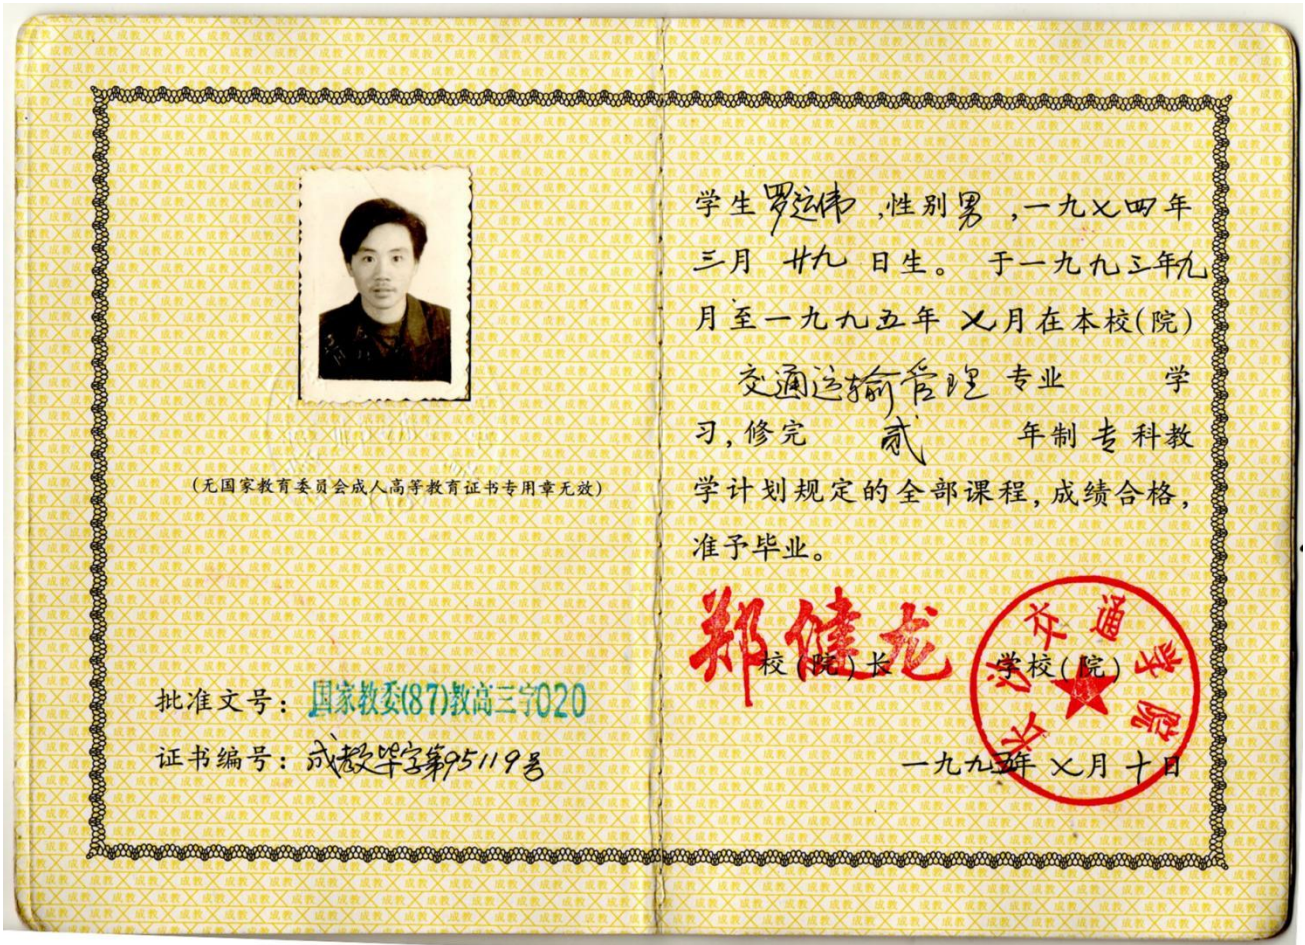 (无国家教育委员会成人高等教育证书专用章无效)
批准文号：国家教委(87)教高三字020
证书编号：成教毕字第95119号
学生罗运伟,性别男,一九七四年
三月廿九日生。于一九九三年九
月至一九九五年七月在本校(院)
交通运输管理专业学
习,修完贰年制专科教
学计划规定的全部课程,成绩合格,
准予毕业。
郑健龙
校(院)长
学校(院)
长沙交通学院
一九九五年七月十日